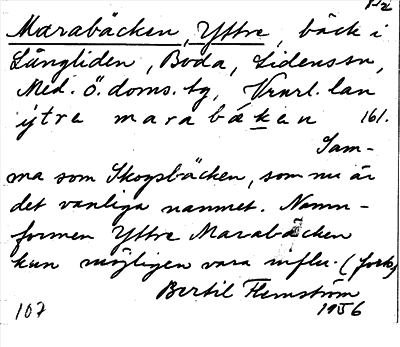 Marabäcken, Yttre, bäck i
Långliden, Boda, Lidens sn,
Med. ö. doms. tg, Vnorl. län
ýtre marabäken 161.
Sam-
ma som Skogsbäcken, som nu är
det vanliga namnet. Namn-
formen Yttre Marabäcken
kan möjligen vara influ. (forts)
Bertil Flemström
107 1956